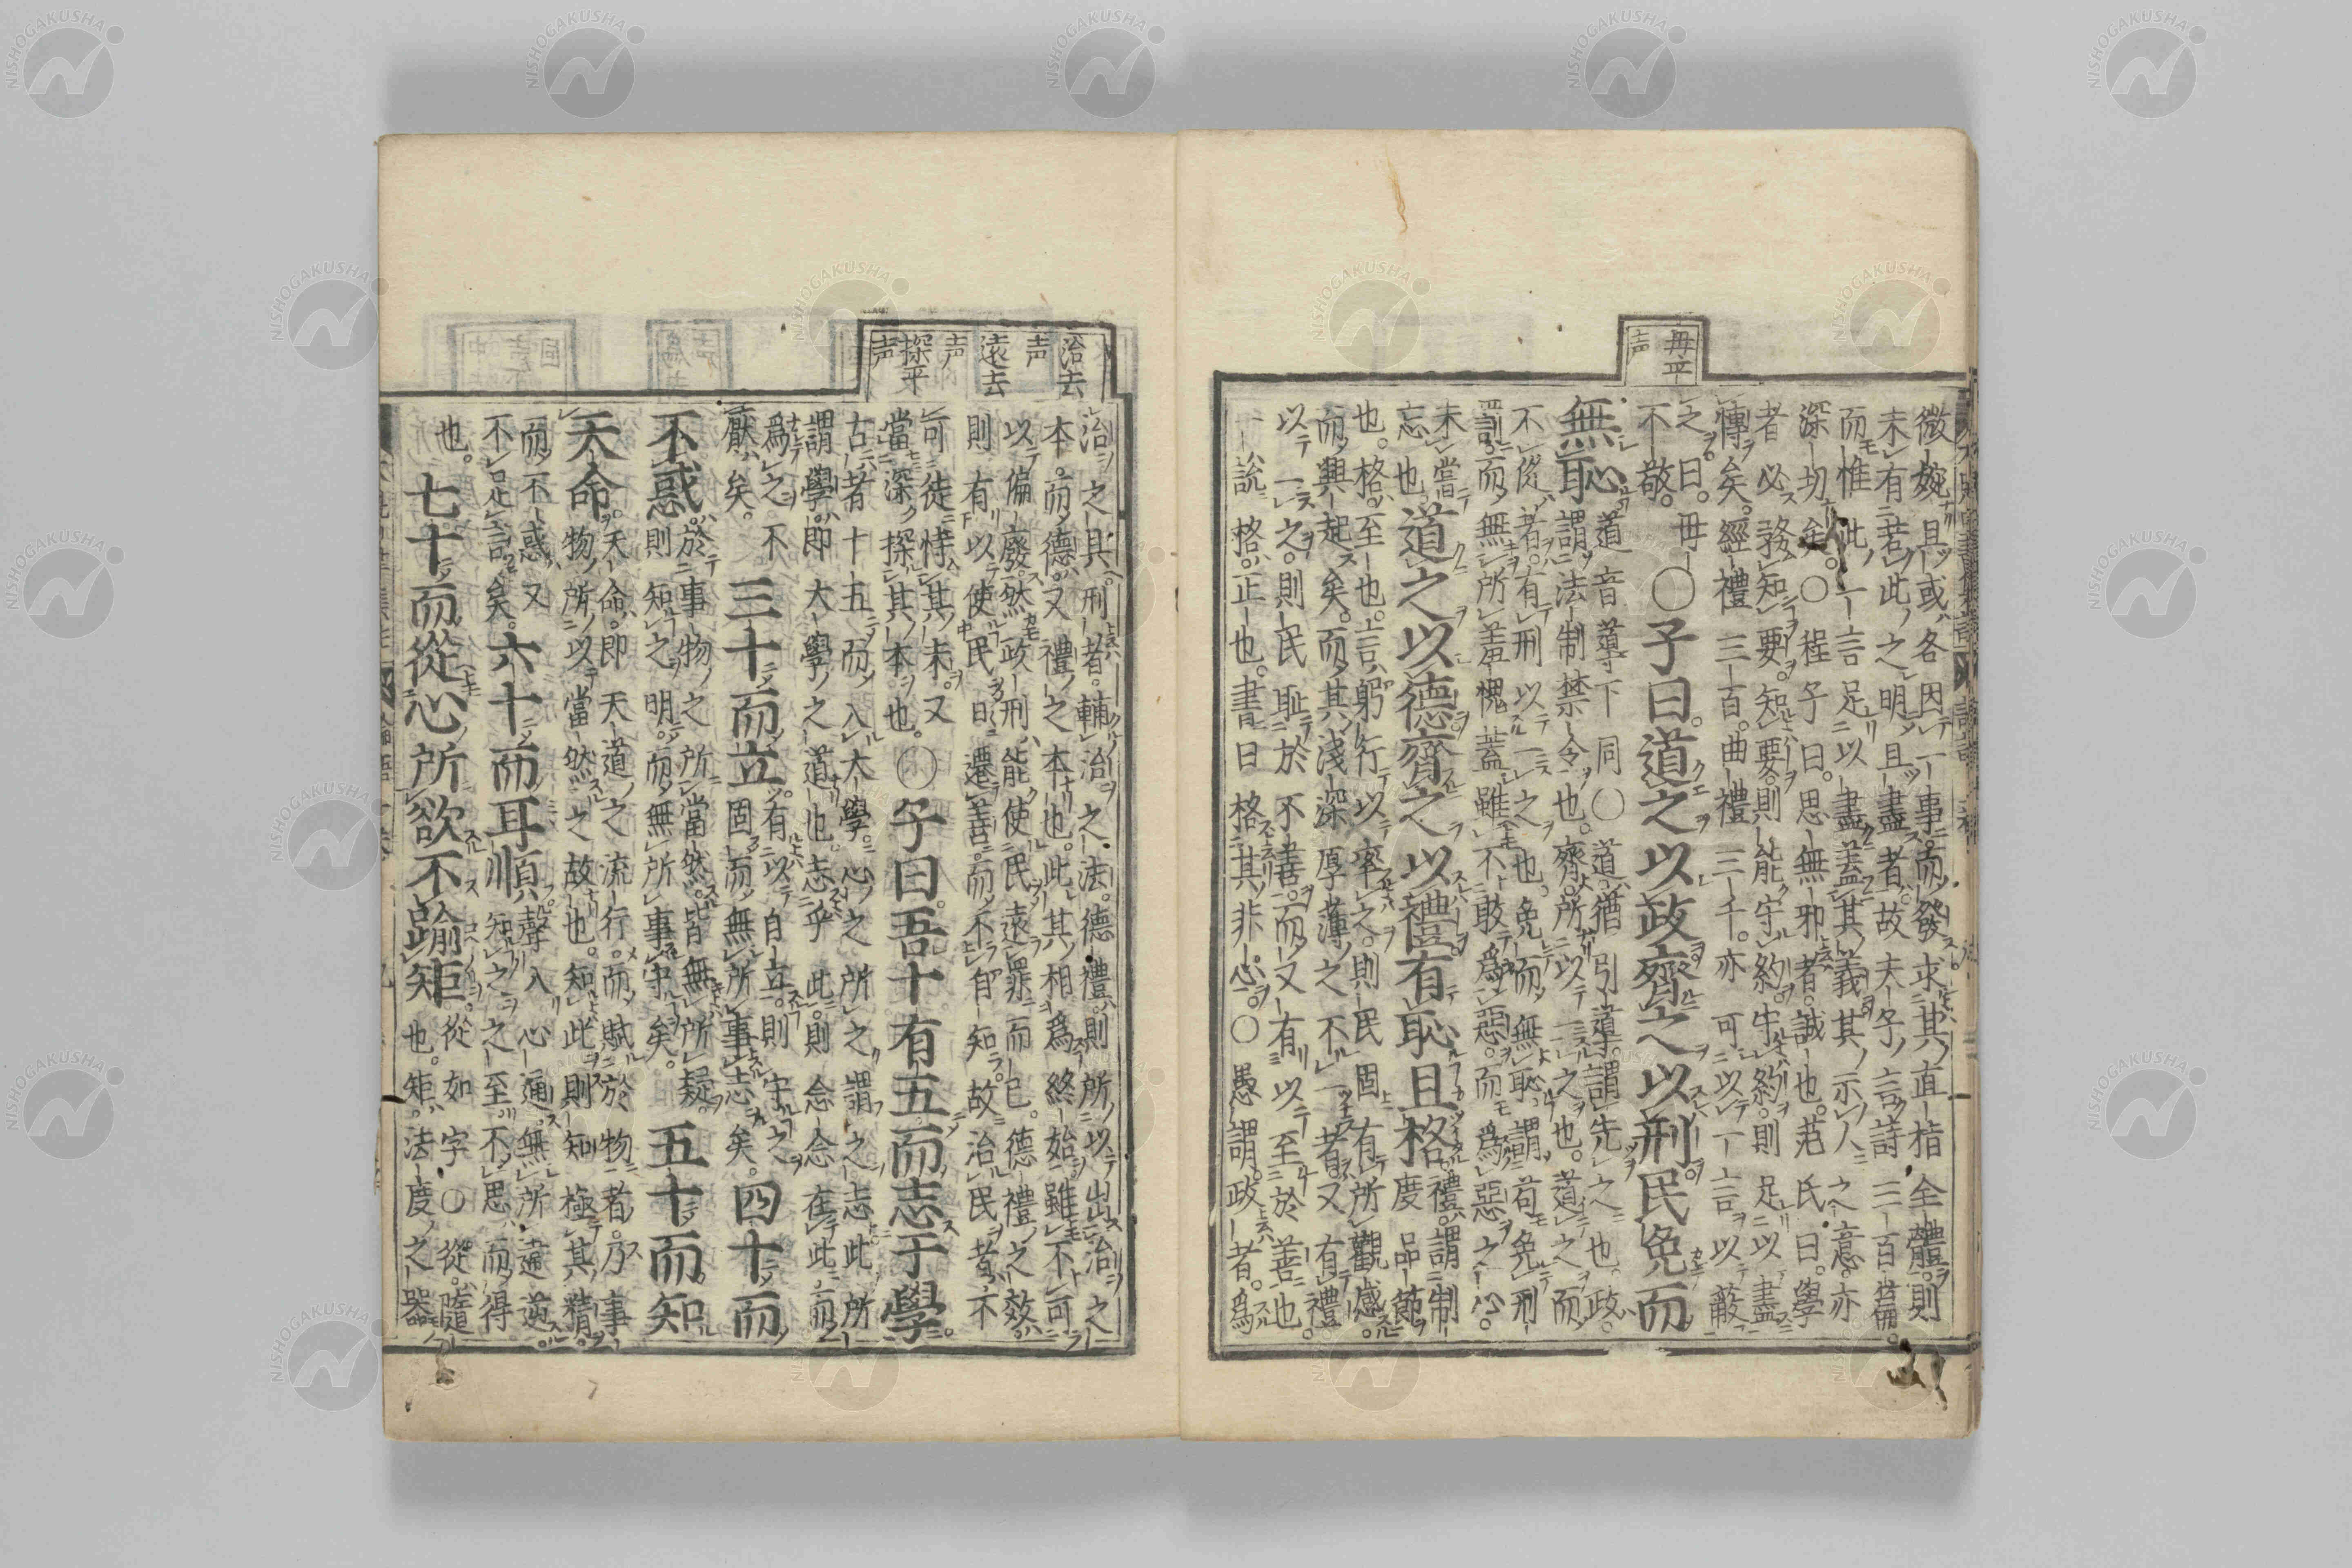 毋平
声
微婉且或各因一事而發求其直指全體則
未有若此之明且盡者故夫子言詩三百篇
而惟此一言足以盡蓋其義其示人之意亦
深切矣○程子曰思無邪者誠也范氏曰學
者必務知要知要則能守約守約則足以盡
愽矣經禮三百曲禮三千亦可以一言以蔽
之曰毋
不敬
○子曰道之以政齊之以刑民免而
無恥
道音導下同○道猶引導謂先之也政
謂法制禁令也齊所以一之也道之而
不從者有刑以一之也免而無恥謂苟免刑
罰而無所羞愧蓋雖不敢爲惡而爲惡之心
未嘗
忘也
道之以德齊之以禮有恥且格
禮謂制
度品節
也格至也言躬行以率之則民固有所觀感
而興起矣而其淺深厚薄之不一者又有禮
以一之則民恥於不善而又有以至於善也
一說格正也書曰格其非心○愚謂政者爲
治去
声
遠去
声
探平
声
治之具刑者輔治之法德禮則所以出治之
本而德又禮之本也此其相爲終始雖不可
以偏廢然政刑能使民遠罪而已德禮之效
則有以使民日遷善而不自知故治民者不
可徒恃其末又
當深探其本也
○子曰吾十有五而志于學
古者十五而入大學心之所之謂之志此所
謂學即大學之道也志乎此則念念在此而
爲之不
厭矣
三十而立
有以自立則守之
固而無所事志矣
四十而
不惑
於事物之所當然皆無所疑
則知之明而無所事守矣
五十而知
天命
天命即天道之流行而賦於物者乃事
物所以當然之故也知此則知極其精
而不惑又
不足言矣
六十而耳順
聲入心通無所違逆
知之之至不思而得
也
七十而從心所欲不踰矩
從如字○從隨
也矩法度之器